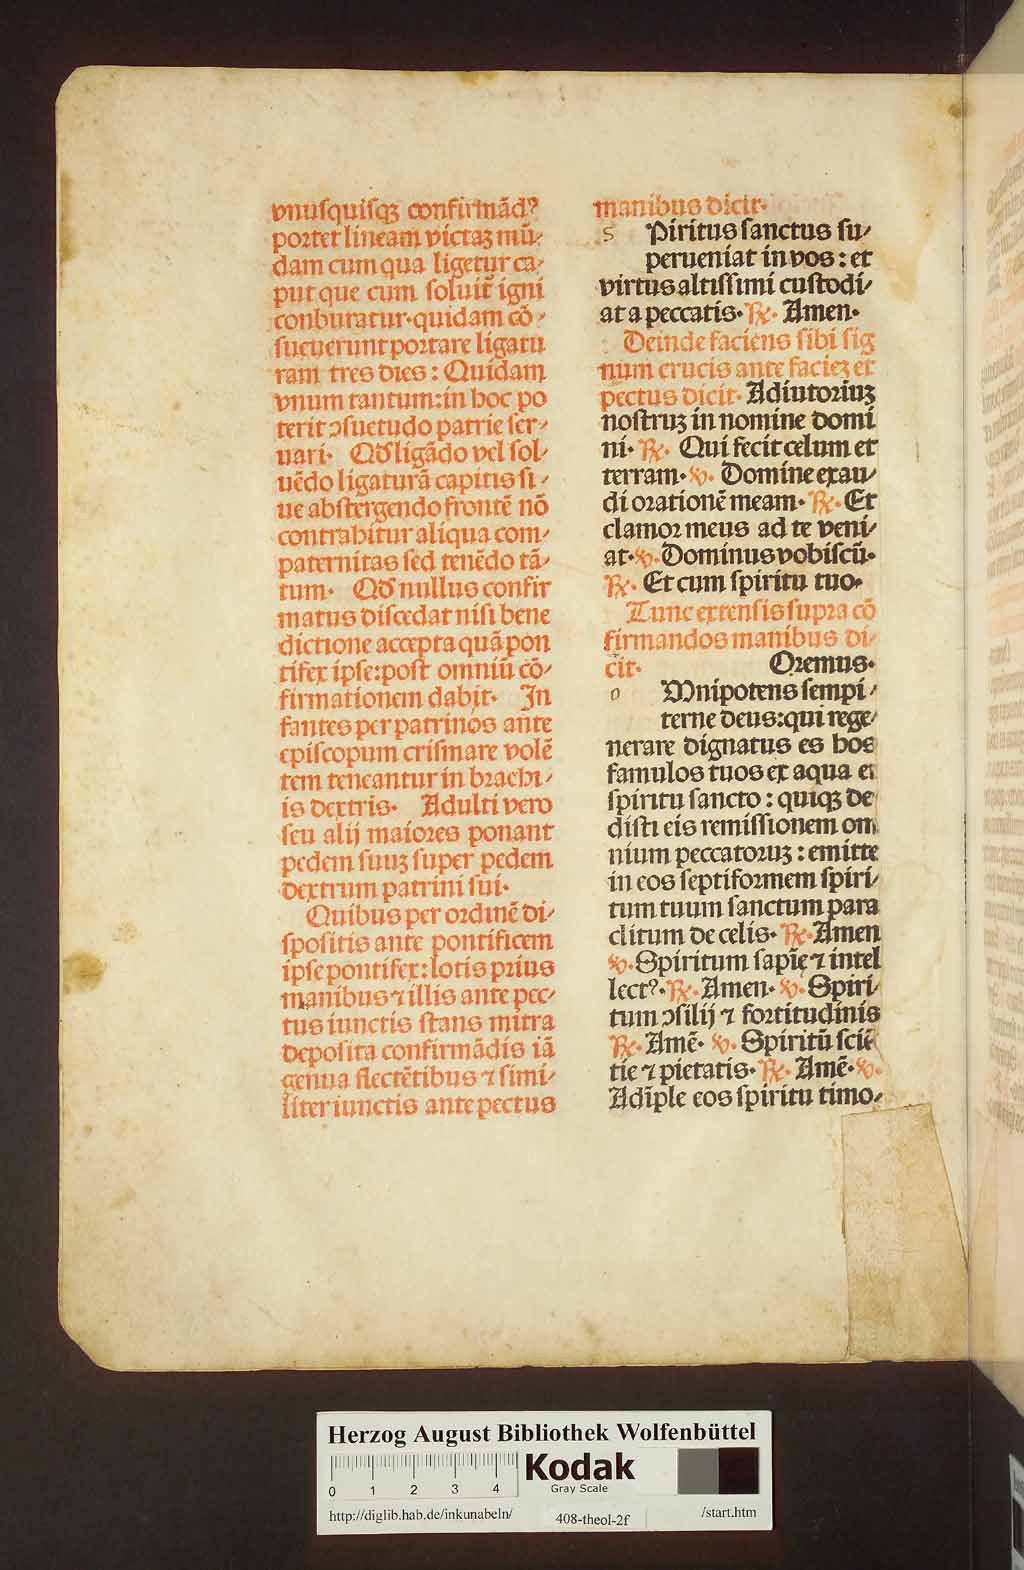 vnuſquiſqꝫ confirmãdꝰ
portet lineam victaꝫ mũ⸗
dam cum qua ligetur ca⸗
put que cum ſoluit᷑ igni
conburatur·quidam cõ⸗
ſueuerunt portare ligatu
ram tres dies: Quidam
vnum tantum:in hoc po
terit ↄſuetudo patrie ſer⸗
uari· Qđ ligãdo vel ſol⸗
uẽdo ligaturã capitis ſi⸗
ue abſtergendo frontẽ nõ
contrahitur aliqua com⸗
paternitas ſed tenẽdo tã⸗
tum· Qđ nullus confir
matus diſcedat niſi bene
dictione accepta quã pon
tifex ipſe:poſt omniũ cõ⸗
firmationem dabit· In
fantes per patrinos ante
epiſcopum criſmare volẽ
tem teneantur in brachi⸗
is dextris· Adulti vero
ſeu alij maiores ponant
pedem ſuuꝫ ſuper pedem
dextrum patrini ſui·
Quibus per ordinẽ di⸗
ſpoſitis ante pontificem
ipſe pontifex: lotis prius
manibus ⁊ illis ante pec⸗
tus iunctis ſtans mitra
depoſita confirmãdis iã
genua flectẽtibus ⁊ ſimi⸗
liter iunctis ante pectus
manibus dicit·
s Piritus ſanctus ſu⸗
perueniat in vos: et
virtus altiſſimi cuſtodi⸗
at a peccatis· ℟· Amen·
Deinde faciens ſibi ſig
num crucis ante facieꝫ et
pectus dicit· Adiutoriuꝫ
noſtruꝫ in nomine domi
ni· ℟· Qui fecit celum et
terram· ℣· Domine exau⸗
di orationẽ meam· ℟· Et
clamor meus ad te veni⸗
at·℣·Dominus vobiſcũ·
℟· Et cum ſpiritu tuo·
Tunc extenſis ſupra cõ
firmandos manibus di⸗
cit· Oremus·
o Mnipotens ſempi⸗
terne deus:qui rege⸗
nerare dignatus es hos
famulos tuos ex aqua et
ſpiritu ſancto: quiqꝫ de
diſti eis remiſſionem om
nium peccatoruꝫ: emitte
in eos ſeptiformem ſpiri⸗
tum tuum ſanctum para
clitum de celis· ℟·Amen
℣·Spiritum ſapiẽ ⁊ intel
lectꝰ·℟·Amen· ℣·Spiri⸗
tum ↄſilij ⁊ fortitudinis
℟·Amẽ· ℣·Spiritũ ſciẽ
tie ⁊ pietatis·℟·Amẽ·℣·
Adĩple eos ſpiritu timo⸗
Herzog August Bibliothek Wolfenbüttel
0 1 2 3 4
Kodak
Gray Scale
http://diglib.hab.de/inkunabeln/ 408-theol-2f /start.htm